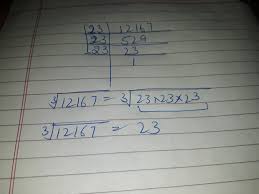 23 | 12167
23 | 529
23 | 23
| 1
∛12167 = ∛23×23×23
∛12167 = 23